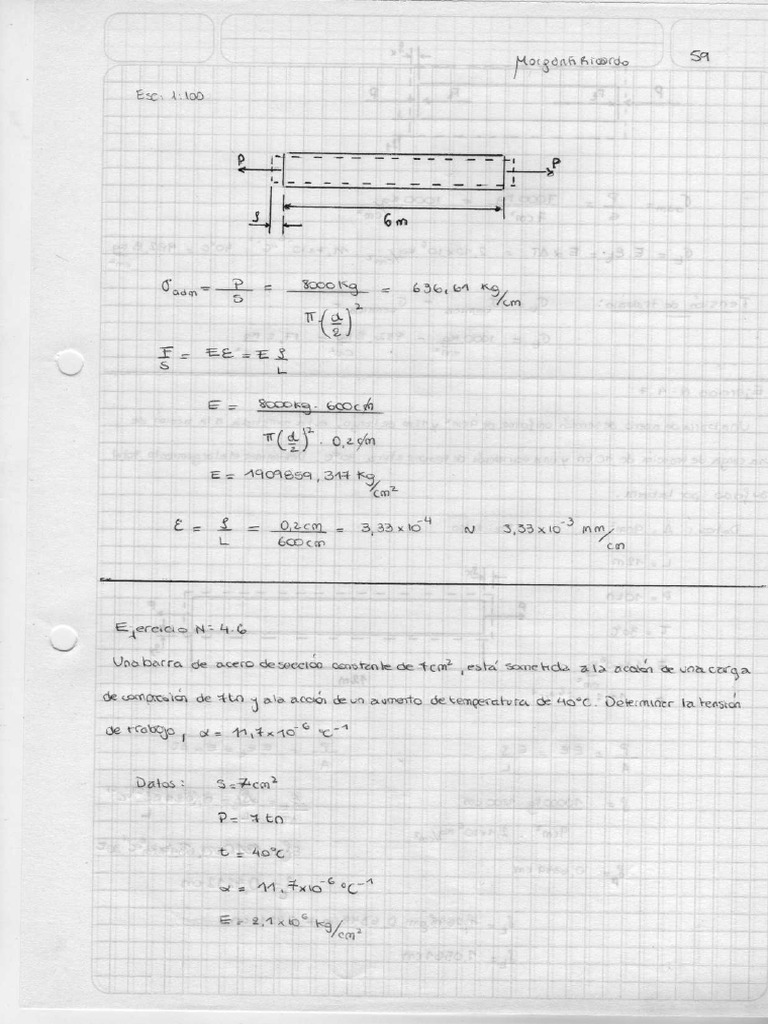 Morganti Ricardo 59
Esc: 1:100
P P
δ 6 m
σadm = P/S = 8000 kg / π·(d/2)² = 636,61 kg/cm
F/S = Eε = E δ/L
E = 8000 kg · 600 cm / π(d/2)² · 0,2 cm
E = 1909859,317 kg/cm²
ε = δ/L = 0,2 cm / 600 cm = 3,33 x 10⁻⁴ ~ 3,33 x 10⁻³ mm/cm
Ejercicio N= 4.6
Una barra de acero de sección constante de 7 cm², está sometida a la acción de una carga
de compresión de 7 tn y a la acción de un aumento de temperatura de 40°C. Determinar la tensión
de trabajo, α = 11,7 x 10⁻⁶ °C⁻¹
Datos: S = 7 cm²
P = 7 tn
t = 40°C
α = 11,7x10⁻⁶ °C⁻¹
E = 2,1 x 10⁶ kg/cm²